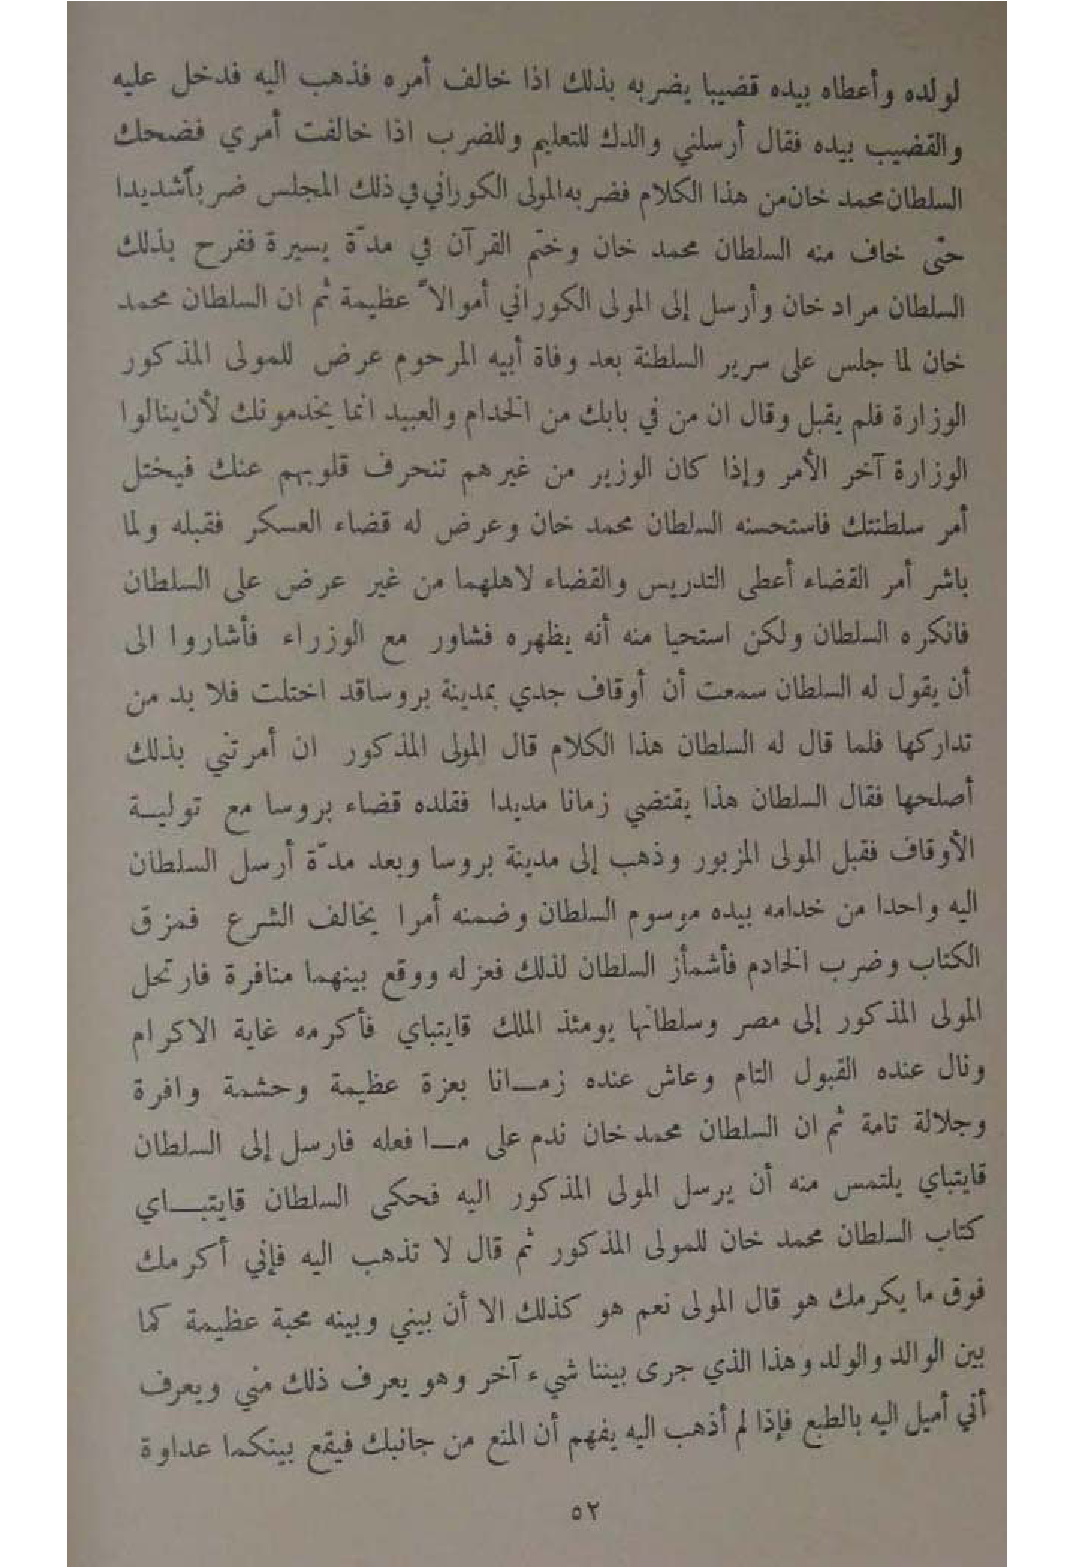 لولده وأعطاه بيده قضيبا يضربه بذلك اذا خالف أمره فذهب اليه فدخل عليه
والقضيب بيده فقال أرسلني والدك للتعليم وللضرب اذا خالفت أمري فضحك
السلطان محمد خان من هذا الكلام فضربه المولى الكوراني في ذلك المجلس ضرباً شديدا
حتّى خاف منه السلطان محمد خان وختم القرآن في مدّة يسيرة ففرح بذلك
السلطان مراد خان وأرسل إلى المولى الكوراني أموالاً عظيمة ثم ان السلطان محمد
خان لما جلس على سرير السلطنة بعد وفاة أبيه المرحوم عرض للمولى المذكور
الوزارة فلم يقبل وقال ان من في بابك من الخدام والعبيد انما يخدمونك لأن ينالوا
الوزارة آخر الأمر وإذا كان الوزير من غيرهم تنحرف قلوبهم عنك فيختل
أمر سلطنتك فاستحسنه السلطان محمد خان وعرض له قضاء العسكر فقبله ولما
باشر أمر القضاء أعطى التدريس والقضاء لاهلهما من غير عرض على السلطان
فانكره السلطان ولكن استحيا منه أنه يظهره فشاور مع الوزراء فأشاروا الى
أن يقول له السلطان سمعت أن أوقاف جدي بمدينة بروسا قد اختلت فلا بد من
تداركها فلما قال له السلطان هذا الكلام قال المولى المذكور ان أمرتني بذلك
أصلحها فقال السلطان هذا يقتضي زمانا مديدا فقلده قضاء بروسا مع توليـة
الأوقاف فقبل المولى المزبور وذهب إلى مدينة بروسا وبعد مدّة أرسل السلطان
اليه واحدا من خدامه بيده مرسوم السلطان وضمنه أمرا يخالف الشرع فمزق
الكتاب وضرب الخادم فأشمأز السلطان لذلك فعزله ووقع بينهما منافرة فارتحل
المولى المذكور إلى مصر وسلطانها يومئذ الملك قايتباي فأكرمه غاية الاكرام
ونال عنده القبول التام وعاش عنده زمـانا بعزة عظيمة وحشمة وافرة
وجلالة تامة ثم ان السلطان محمد خان ندم على مـا فعله فارسل إلى السلطان
قايتباي يلتمس منه أن يرسل المولى المذكور اليه فحكى السلطان قايتبـاي
كتاب السلطان محمد خان للمولى المذكور ثم قال لا تذهب اليه فإني أكرمك
فوق ما يكرمك هو قال المولى نعم هو كذلك الا أن بيني وبينه محبة عظيمة كما
بين الوالد والولد وهذا الذي جرى بيننا شيء آخر وهو يعرف ذلك مني ويعرف
أني أميل اليه بالطبع فإذا لم أذهب اليه يفهم أن المنع من جانبك فيقع بينكما عداوة
٥٢